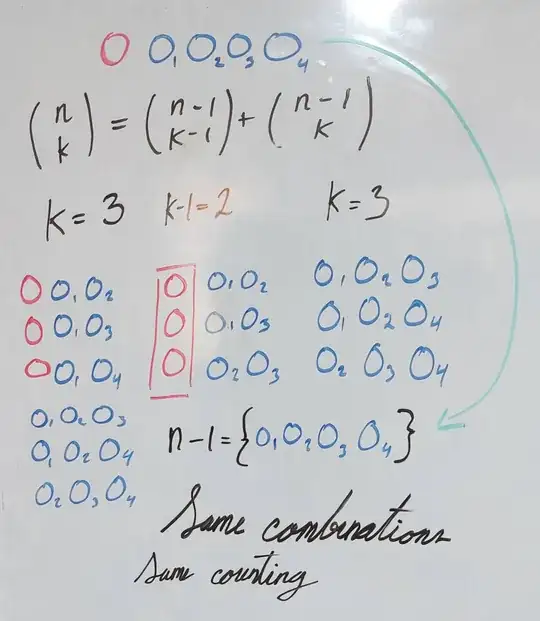 O O₁ O₂ O₃ O₄
(n k) = (n-1 k-1) + (n-1 k)
k = 3 k-1 = 2 k = 3
O O₁ O₂ O O₁ O₂ O₁ O₂ O₃
O O₁ O₃ O O₁ O₃ O₁ O₂ O₄
O O₁ O₄ O O₂ O₃ O₂ O₃ O₄
O₁ O₂ O₃
O₁ O₂ O₄
O₂ O₃ O₄
n-1 = {O₁ O₂ O₃ O₄}
Same combinations
Same counting